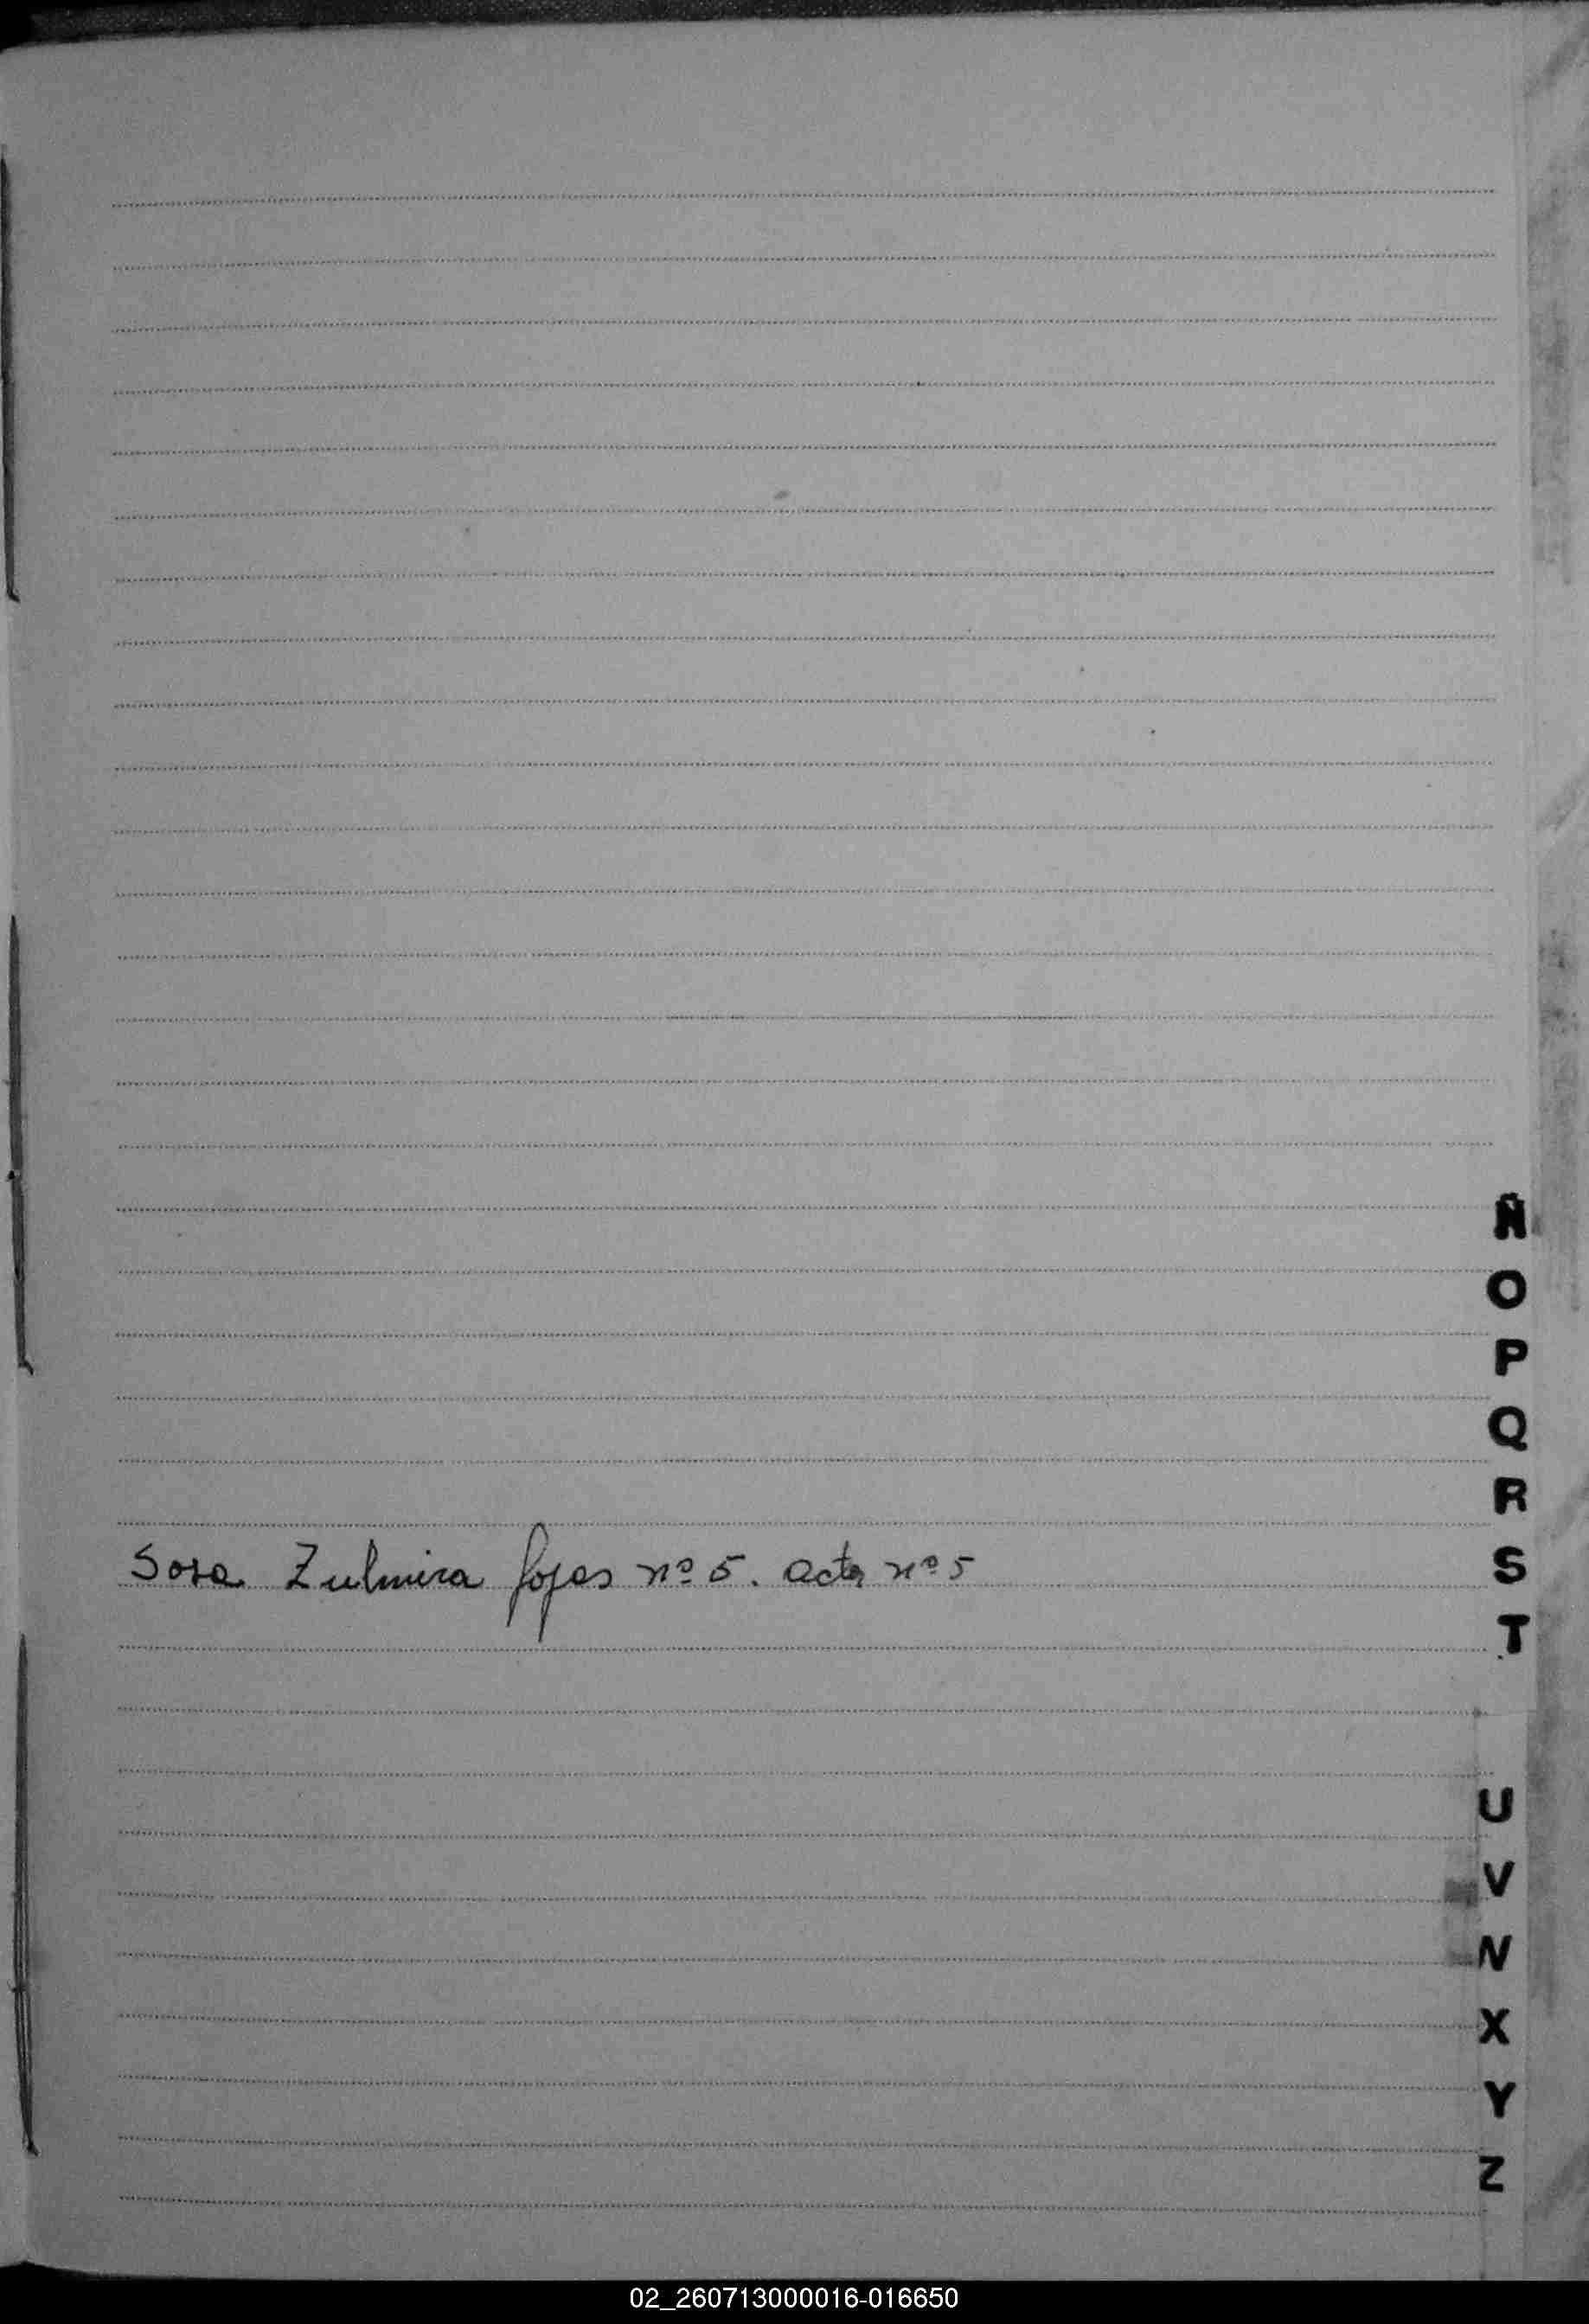 Ñ
O
P
Q
R
Sosa Zulmira fojas nº 5. acta nº 5
S
T
U
V
N
X
Y
Z
02_260713000016-016650